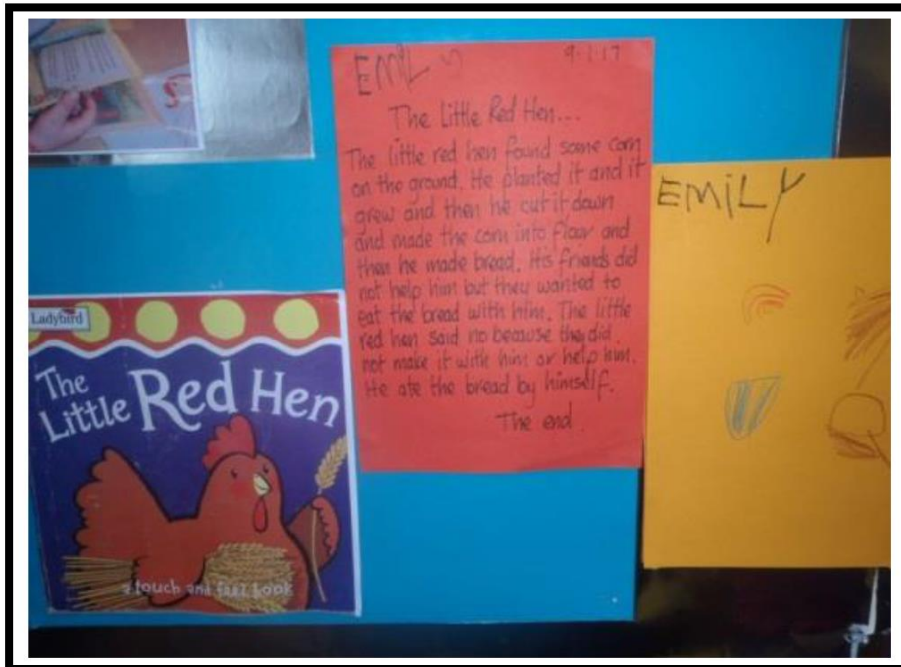 EMILY
9-1-17
The Little Red Hen...
The little red hen found some corn
on the ground. He planted it and it
grew and then he cut it down
and made the corn into floor and
then he made bread. His friends did
not help him but they wanted to
eat the bread with him. The little
red hen said no because they did
not make it with him or help him.
He ate the bread by himself.
The end.
EMILY
Ladybird
The
Little Red Hen
a touch and feel book